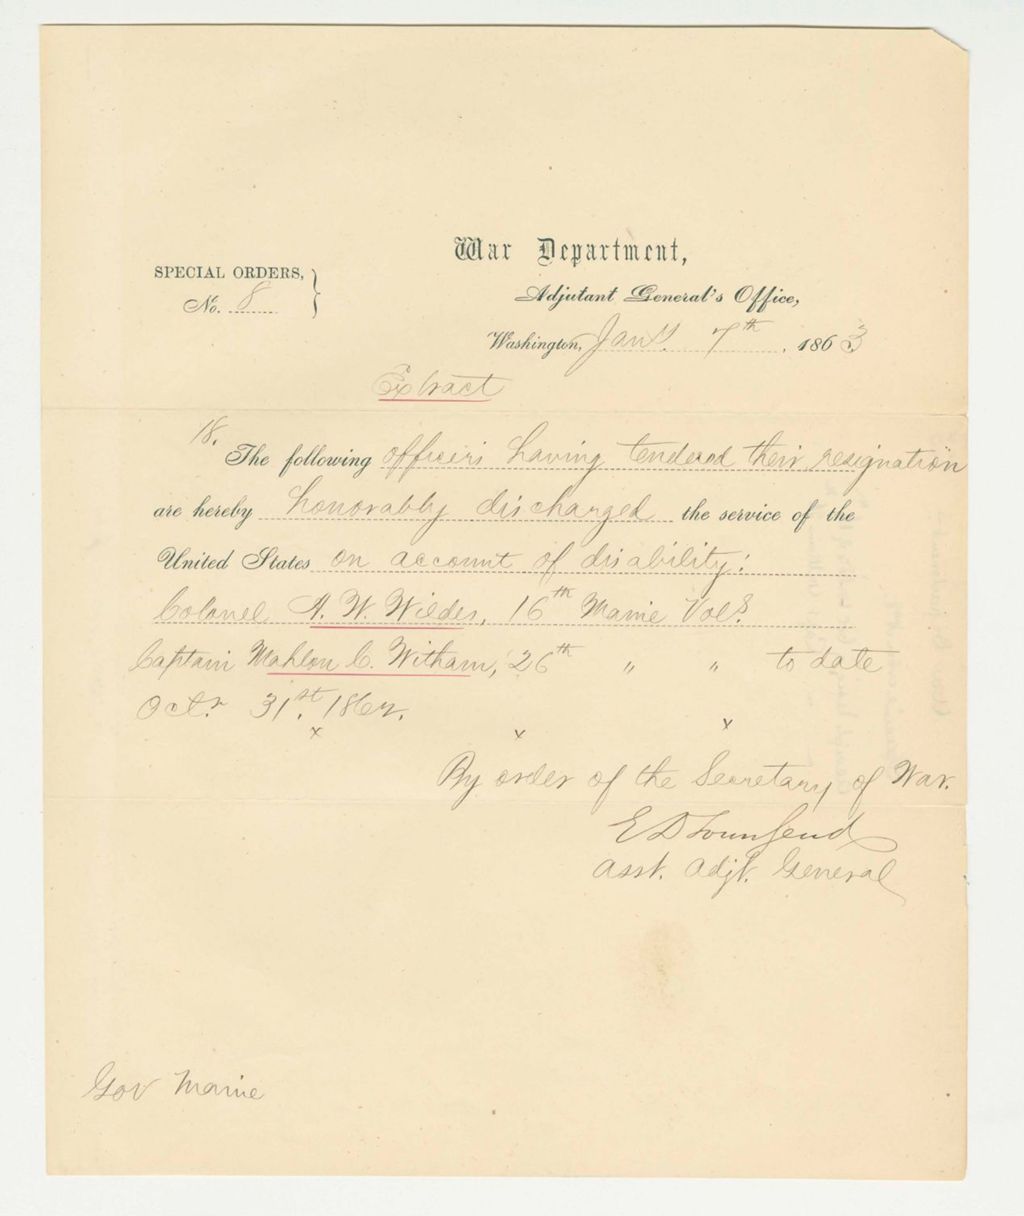 War Department,
SPECIAL ORDERS,
No. 8
Adjutant General's Office,
Washington, Jany. 7th, 1863
Extract
18. The following officers having tendered their resignation
are hereby honorably discharged the service of the
United States on account of disability:
Colonel A. W. Wildes, 16th Maine Vols.
Captain Mahlon C. Witham, 26th " " to date
Octr. 31st. 1862.
x x x
By order of the Secretary of War.
E D Townsend
Asst. Adjt. General
Gov Maine